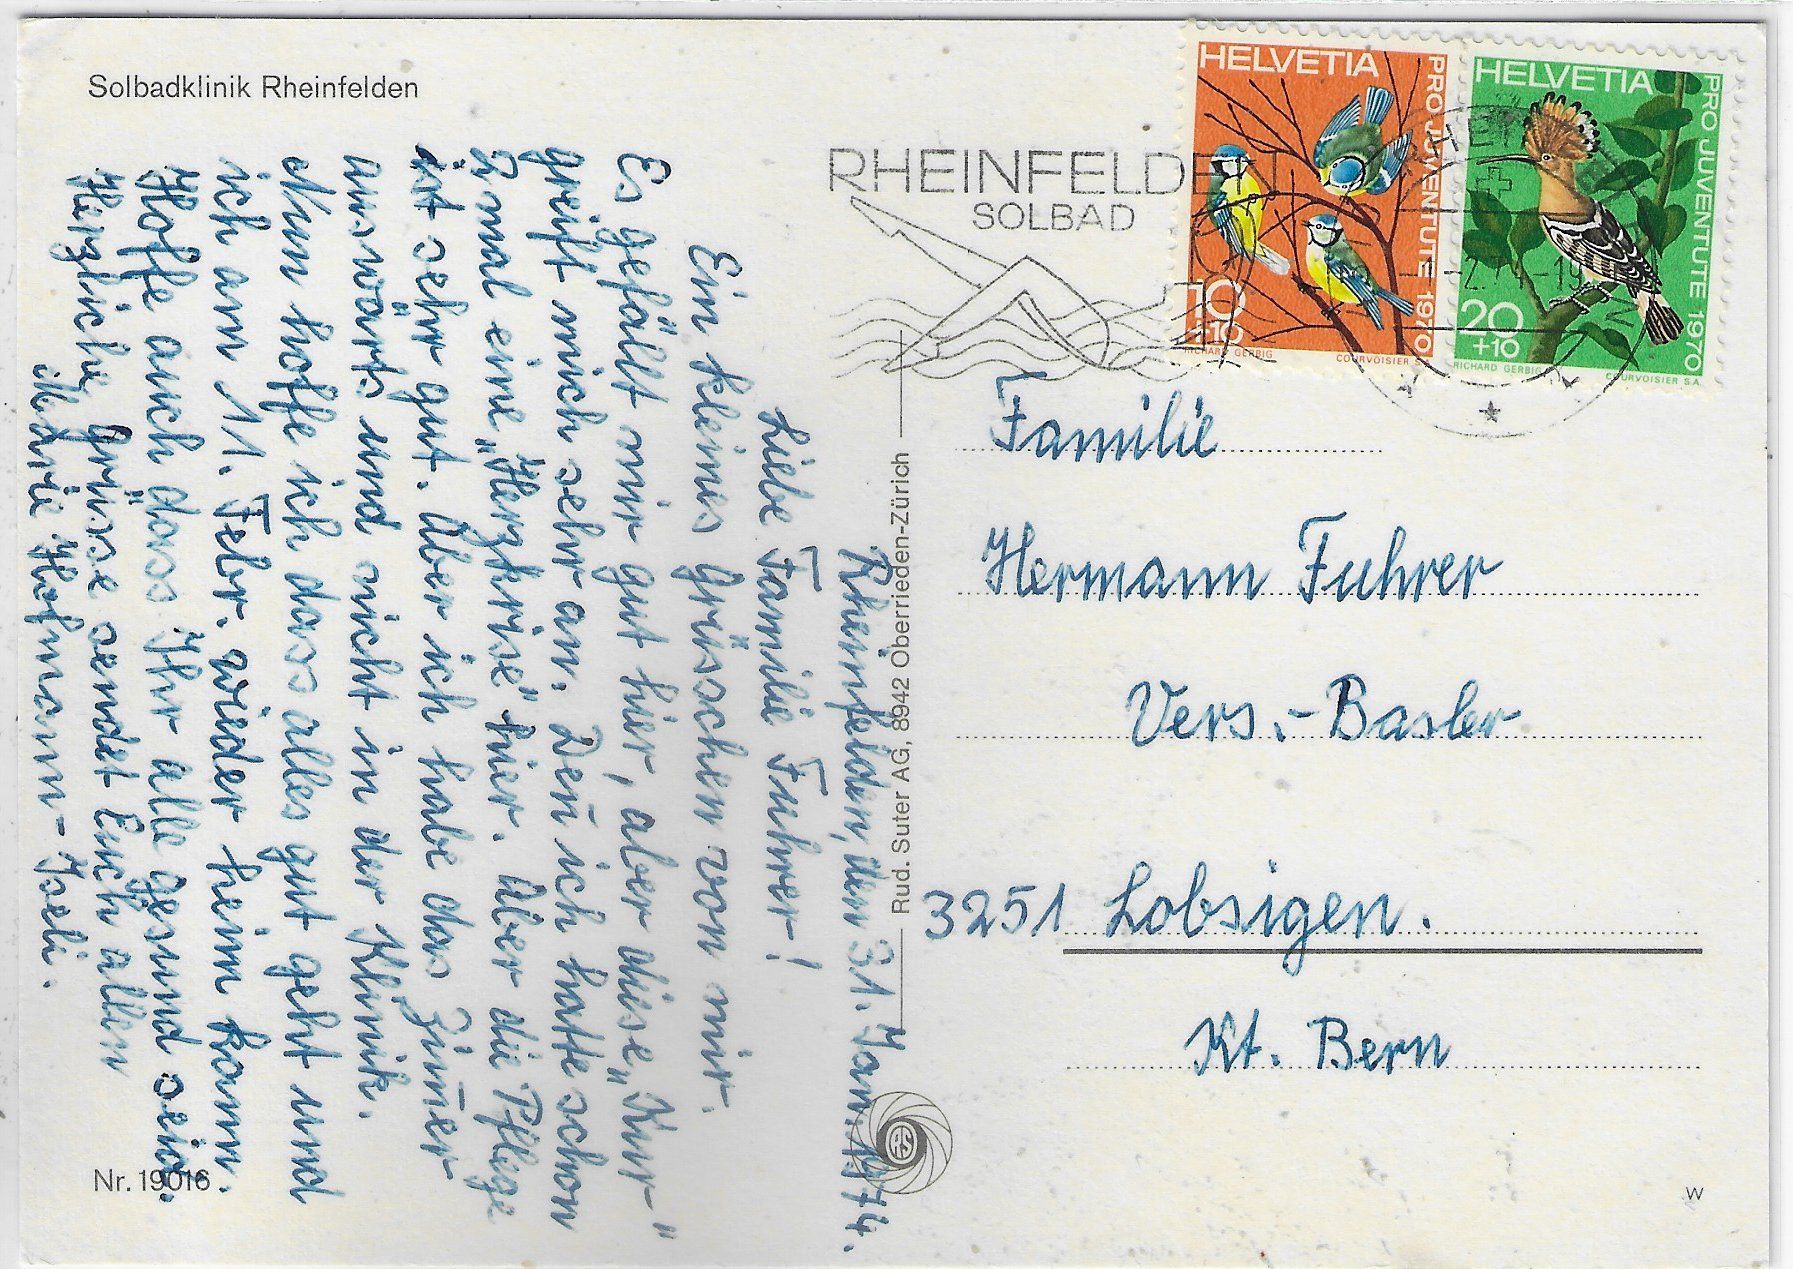 Solbadklinik Rheinfelden
Rheinfelden, den 31. Jan. 1974.
Liebe Familie Fuhrer!
Ein kleines Grüsschen von mir.
Es gefällt mir gut hier, aber diese „Kur"
greift mich sehr an. Den ich hatte schon
2 mal eine „Herzkrise" hier. Aber die Pflege
ist sehr gut. Aber ich habe das Zim̄er
auswärts und nicht in der Klinik.
Nun hoffe ich dass alles gut geht und
ich am 11. Febr. wieder heim kann.
Hoffe auch dass Ihr alle gesund seid.
Herzliche Grüsse sendet Euch allen
Marie Hofmann-Iseli.
Nr. 19016
Rud. Suter AG, 8942 Oberrieden-Zürich
RS
RHEINFELDEN
SOLBAD
HELVETIA
PRO JUVENTUTE 1970
10
+10
RICHARD GERBIG
COURVOISIER S.A.
HELVETIA
PRO JUVENTUTE 1970
20
+10
RICHARD GERBIG
COURVOISIER S.A.
Familie
Hermann Fuhrer
Vers.-Basler
3251 Lobsigen.
Kt. Bern
W